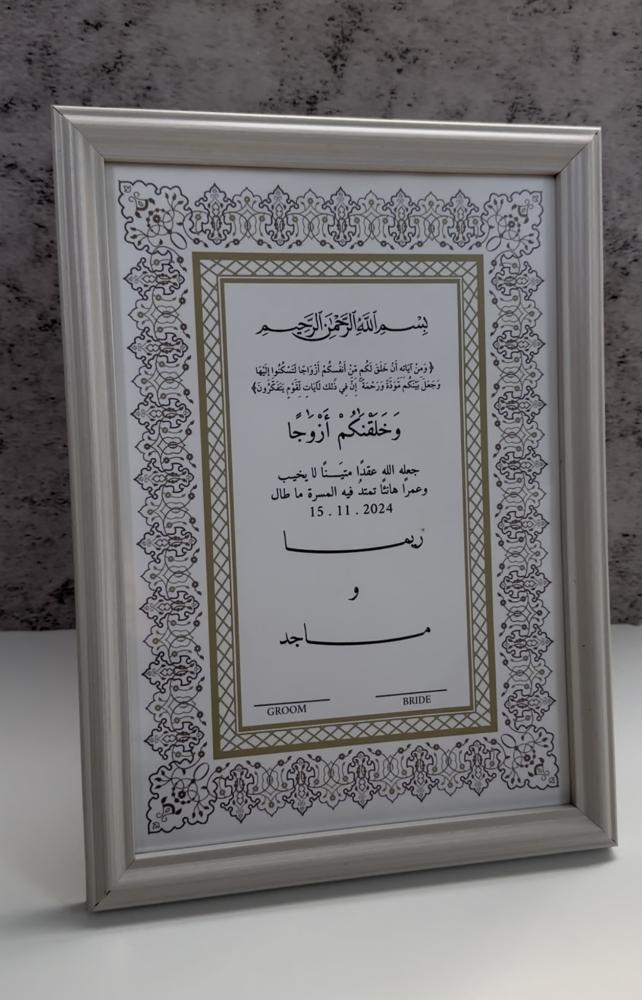 بِسْمِ اللَّهِ الرَّحْمَنِ الرَّحِيمِ
﴿ وَمِنْ آيَاتِهِ أَنْ خَلَقَ لَكُم مِّنْ أَنفُسِكُمْ أَزْوَاجًا لِّتَسْكُنُوا إِلَيْهَا
وَجَعَلَ بَيْنَكُم مَّوَدَّةً وَرَحْمَةً ۚ إِنَّ فِي ذَٰلِكَ لَآيَاتٍ لِّقَوْمٍ يَتَفَكَّرُونَ﴾
وَخَلَقْنَٰكُمْ أَزْوَٰجًا
جعله الله عقدًا متيـــنًا لا يخيب
وعمرًا هانئًا تمتدُ فيه المسرة ما طال
15 . 11 . 2024
ريمـــــــــا
و
مـــــــــاجد
GROOM BRIDE